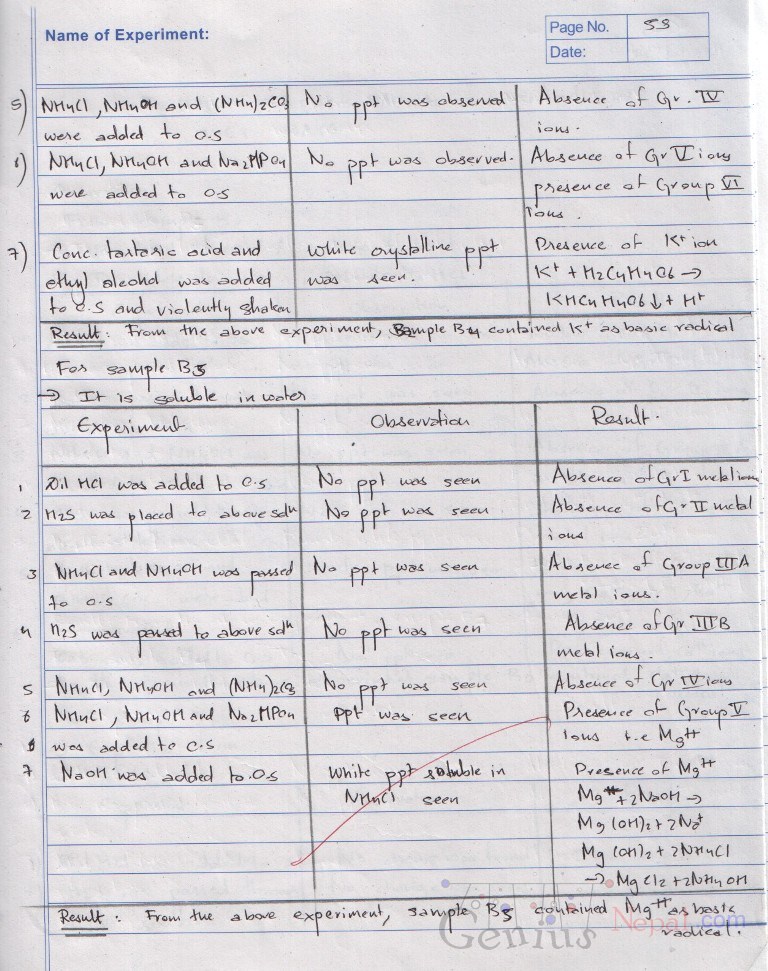 Name of Experiment:
Page No. 53
Date:
5) NH4Cl, NH4OH and (NH4)2CO3 No ppt was observed Absence of Gr. IV
were added to O.S ions.
6) NH4Cl, NH4OH and Na2HPO4 No ppt was observed. Absence of Gr V ions
were added to O.S presence of Group VI
Ions.
7) Conc. tartaric acid and White crystalline ppt Presence of K+ ion
ethyl alcohol was added was seen. K+ + H2C4H4O6 →
to O.S and violently shaken KHC4H4O6 ↓ + H+
Result: From the above experiment, Sample B4 contained K+ as basic radical
For sample B5
→ It is soluble in water
Experiment Observation Result.
1 Dil HCl was added to O.S No ppt was seen Absence of Gr I metal ions
2 H2S was placed to above soln No ppt was seen Absence of Gr II metal
ions
3 NH4Cl and NH4OH was passed No ppt was seen Absence of Group IIIA
to O.S metal ions.
4 H2S was passed to above soln No ppt was seen Absence of Gr IIIB
metal ions.
5 NH4Cl, NH4OH and (NH4)2CO3 No ppt was seen Absence of Gr IV ions
6 NH4Cl, NH4OH and Na2HPO4 ppt was seen Presence of Group V
was added to O.S Ions i.e Mg++
7 NaOH was added to O.S White ppt soluble in Presence of Mg++
NH4Cl seen Mg++ + 2NaOH →
Mg(OH)2 + 2Na+
Mg(OH)2 + 2NH4Cl
→ MgCl2 + 2NH4OH
Result: From the above experiment, sample B5 contained Mg++ as basic
radical.
Genius Nepal.com